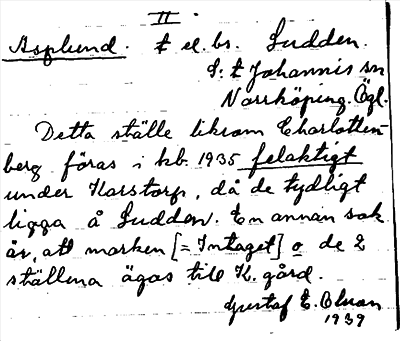 II.
Asplund. t el. bs. Sudden.
S:t Johannis sn
Norrköping. Ögl.
Detta ställe liksom Charlotten-
berg föras i hb. 1935 felaktigt
under Karstorp, då de tydligt
ligga å Sudden. En annan sak
är, att marken [= Intaget] o de 2
ställena ägas till K. gård.
Gustaf E. Olsson
1939